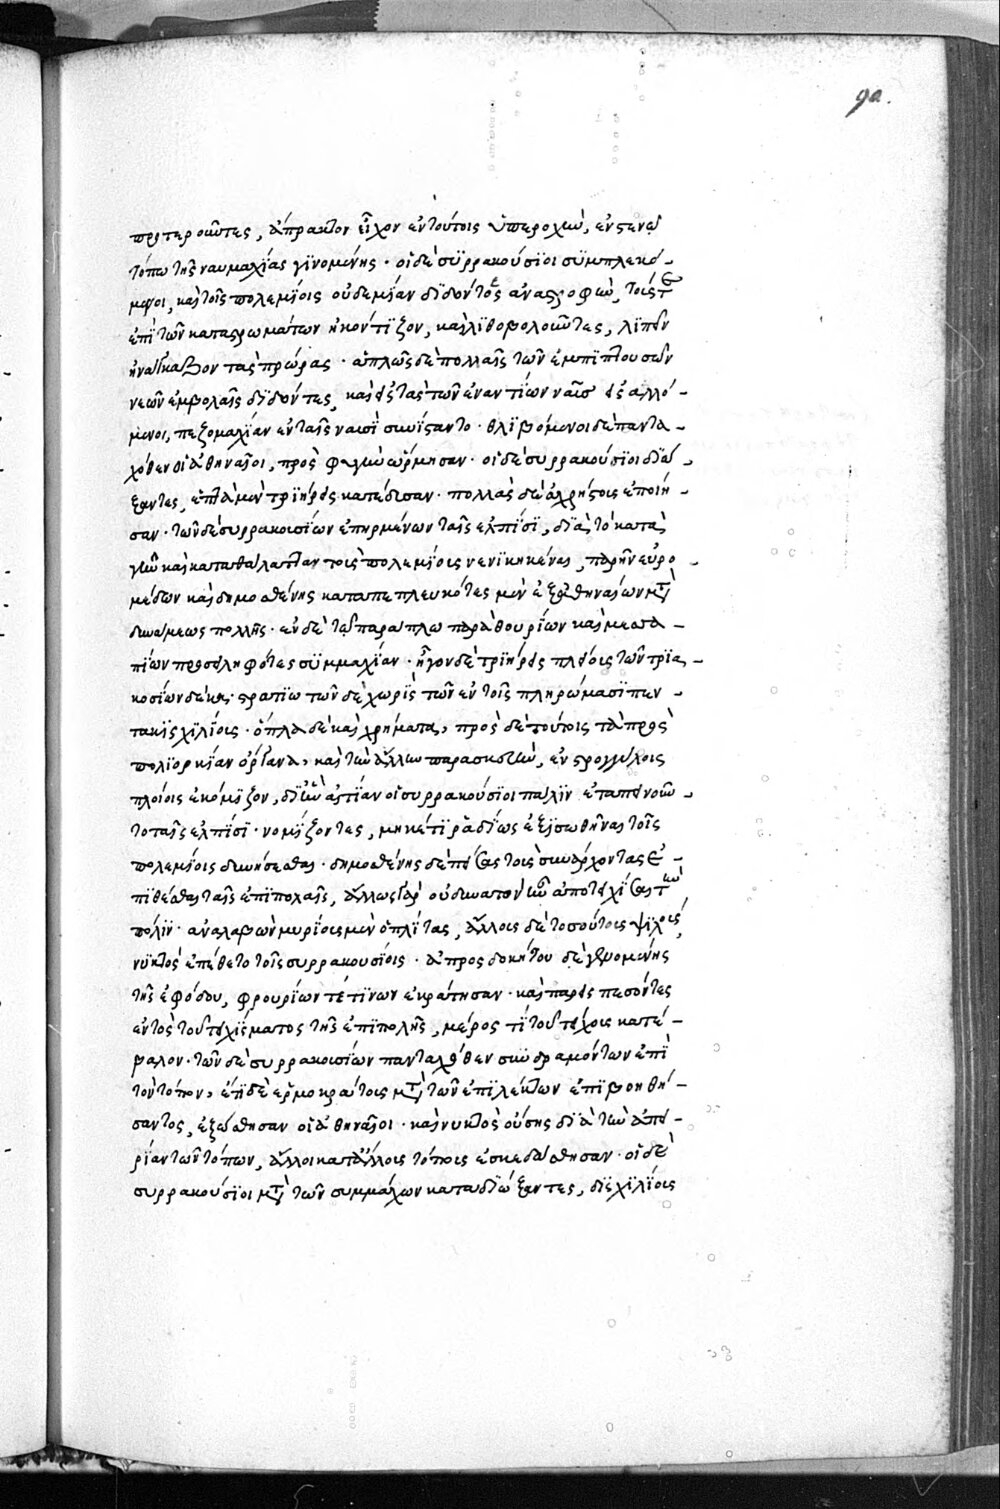 90.
προτεροῦντες, ἄπρακτον εἶχον ἐν τούτοις ὑπεροχὴν, ἐν στενῷ
τόπω τῆς ναυμαχίας γϊνομένης · οἱ δὲ συρρακούσϊοι συμπλεκό-
μενοι, καὶ τοῖς πολεμίοις οὐδεμίαν διδόντες ἀναστροφὴν, τούς τε
ἐπὶ τῶν καταστρωμάτων ἠκόντϊζον, καὶ λϊθοβολοῦντες, λϊπεῖν
ἠνάγκαζον τὰς πρώρας · ἁπλῶς δὲ πολλαῖς τῶν ἐμπϊπτουσῶν
νεῶν ἐμβολαῖς διδόντες, καὶ εἰς τὰς τῶν ἐναντίων ναῦς εἰσαλλό-
μενοι, πεζομαχίαν ἐν ταῖς ναυσὶ συνίσταντο · θλιβόμενοι δὲ παντα-
χόθεν οἱ ἀθηναῖοι, πρὸς φυγὴν ὥρμησαν · οἱ δὲ συρρακούσϊοι διώ-
ξαντες, ἑπτὰ μὲν τριήρεις κατέδυσαν · πολλὰς δὲ ἀχρήστους ἐποίη-
σαν · τῶν δὲ συρρακουσίων ἐπηρμένων ταῖς ἐλπίσϊ, διὰ τὸ κατὰ
γῆν καὶ κατὰ θάλατταν τοὺς πολεμίους νενϊκηκέναι, παρῆν εὐρυ-
μέδων καὶ δημοσθένης καταπεπλευκότες μὲν ἐξ ἀθηναίων μετὰ
δυνάμεως πολλῆς · ἐν δὲ τῷ παράπλω παρὰ θουρίων καὶ μεσσα-
πίων προσειληφότες συμμαχίαν · ἦγον δὲ τριήρεις πλείους τῶν τρια-
κοσίων δέκα · στρατιώτων δὲ χωρὶς τῶν ἐν τοῖς πληρώμασϊ πεν-
τακϊσχιλίους · ὅπλα δὲ καὶ χρήματα, πρὸς δὲ τούτοις τὰ πρὸς
πολιορκίαν ὄργανα, καὶ τὴν ἄλλην παρασκευὴν, ἐν στρογγύλοις
πλοίοις ἐκόμϊζον, δι' ἣν αἰτίαν οἱ συρρακούσϊοι πάλϊν ἐταπεινοῦν-
το ταῖς ἐλπίσϊ · νομίζοντες, μηκέτι ῥᾳδίως ἐξισωθῆναι τοῖς
πολεμίοις δυνήσεσθαι · δημοσθένης δὲ πείσας τοὺς συνάρχοντας ἐ-
πιθέσθαι ταῖς ἐπϊπολαῖς, ἄλλως γὰρ οὐ δυνατὸν ἦν ἀποτειχίσαι τὴν
πόλϊν · ἀναλαβὼν μυρίους μὲν ὁπλίτας, ἄλλους δὲ τοσούτους ψϊλοὺς,
νυκτὸς ἐπέθετο τοῖς συρρακουσίοις · ἀπροσδοκήτου δὲ γενομένης
τῆς ἐφόδου, φρουρίων τέ τϊνων ἐκράτησαν · καὶ παρεισπεσόντες
ἐντὸς τοῦ τειχίσματος τῆς ἐπϊπολῆς, μέρος τϊ τοῦ τείχους κατέ-
βαλον · τῶν δὲ συρρακουσίων πανταχόθεν συνδραμόντων ἐπὶ
τὸν τόπον, ἔτϊ δὲ ἑρμοκράτους μετὰ τῶν ἐπιλέκτων ἐπϊβοηθή-
σαντος, ἐξεώσθησαν οἱ ἀθηναῖοι · καὶ νυκτὸς οὔσης διὰ τὴν ἀπει-
ρίαν τῶν τόπων, ἄλλοι κατ' ἄλλους τόπους ἐσκεδάσθησαν · οἱ δὲ
συρρακούσϊοι μετὰ τῶν συμμάχων καταδιώξαντες, δισχιλίους